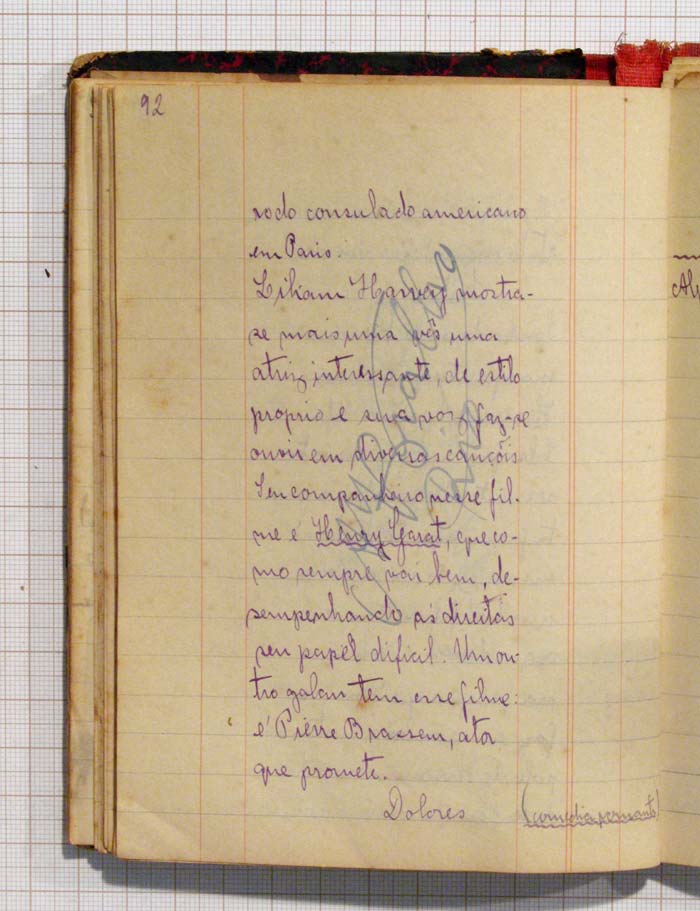 92
ro do consulado americano
em Paris
Liliam Harvey mostra-
se mais uma vês uma
atriz interessante, de estilo
proprio e sua voz faz-se
ouvir em diversas cançõis
Seu companheiro nesse fil-
me é Henry Garat, que co-
mo sempre vai bem, de-
sempenhando ás direitas
seu papel dificil. Um ou-
tro galan tem esse filme:
é Pierre Brassem, ator
que promete.
Dolores
Rio